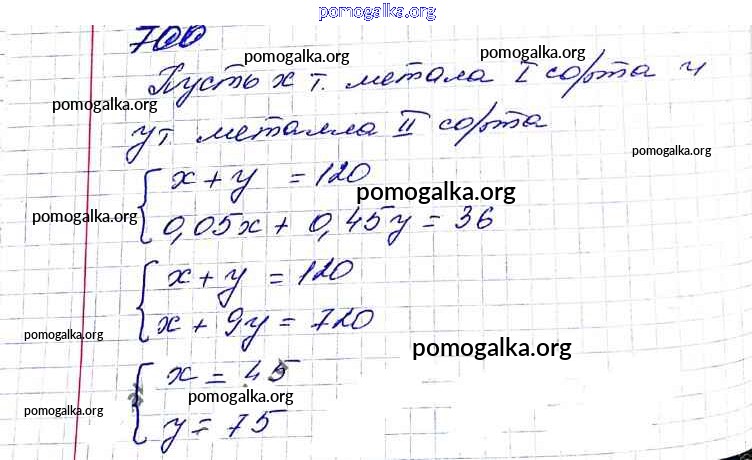 pomogalka.org
700
pomogalka.org pomogalka.org
Пусть x т. метала I сорта и
pomogalka.org
y т. металла II сорта
pomogalka.org
x + y = 120
pomogalka.org
pomogalka.org
0,05x + 0,45y = 36
x + y = 120
x + 9y = 720
pomogalka.org
pomogalka.org
x = 45
pomogalka.org
pomogalka.org
y = 75